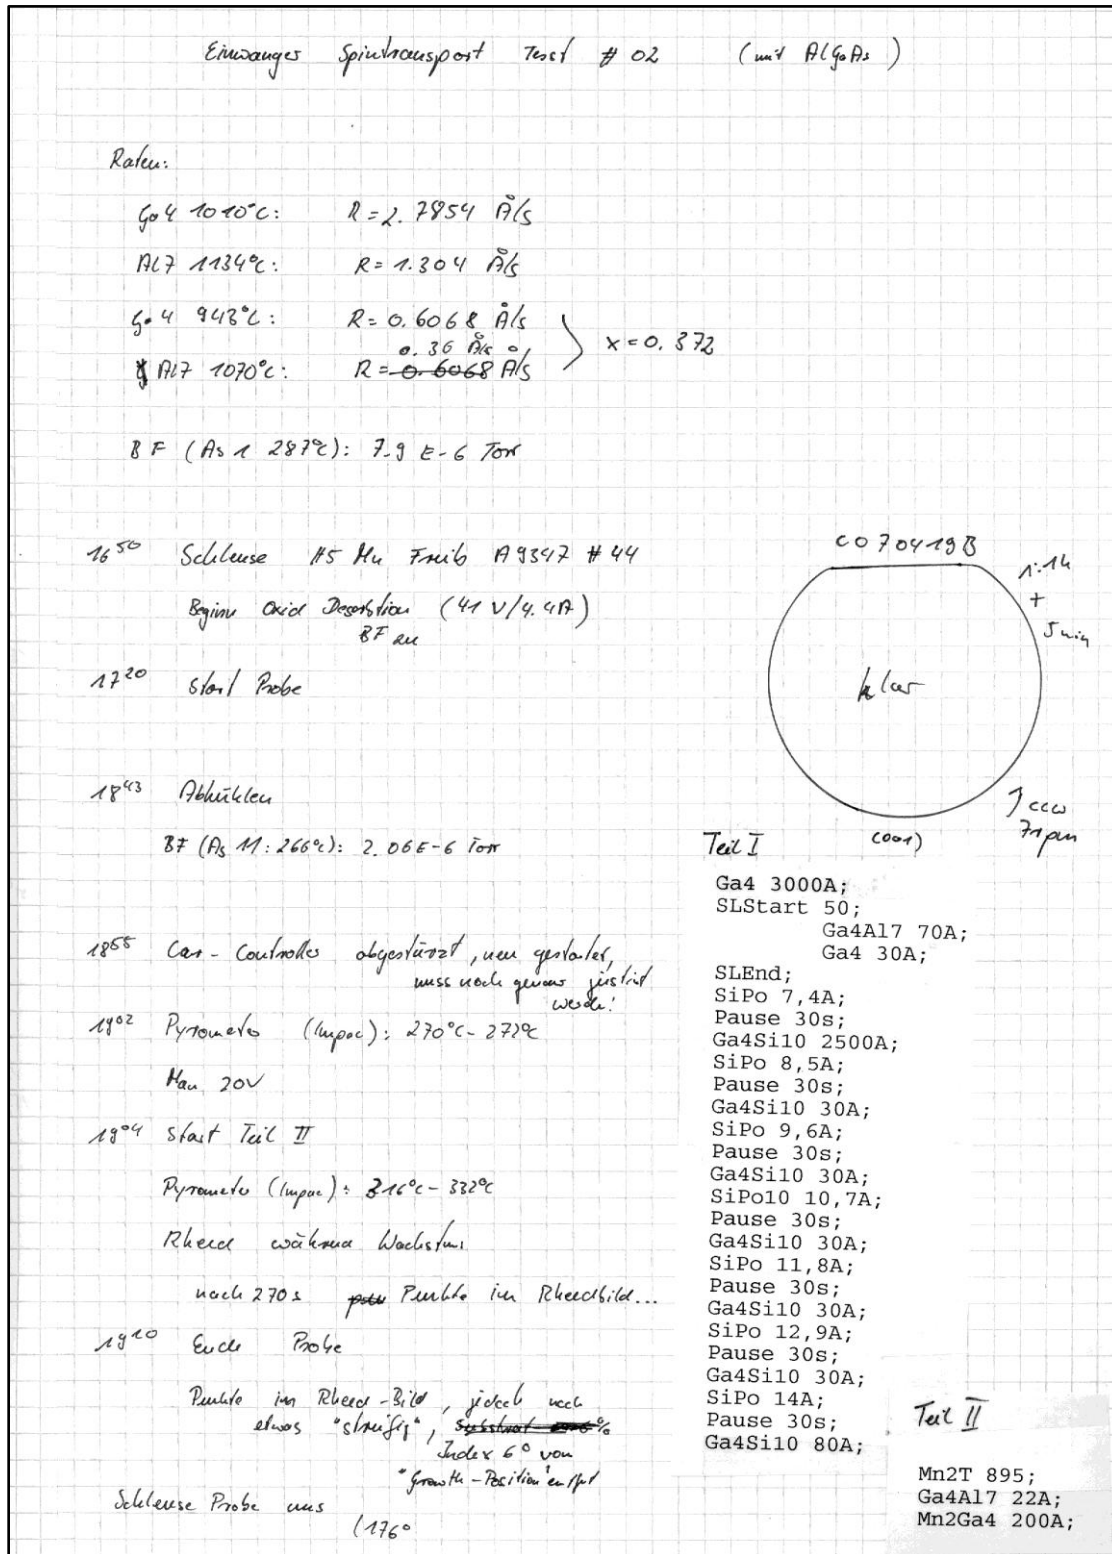 Einwanger Spintransport Test # 02 (mit AlGaAs)
Raten:
Ga4 1010°C: R = 2.7854 Å/s
Al7 1134°C: R = 1.304 Å/s
Ga4 943°C: R = 0.6068 Å/s
0.36 Å/s
Al7 1070°C: R = 0.6068 Å/s
x = 0.372
BF (As 1 287°C): 7.9 E-6 Torr
16 50 Schleuse #5 Mn Freib A9347 #44
Beginn Oxid Desorbtion (41 V/4.4A)
BF an
17 20 Start Probe
18 43 Abkühlen
BF (As 11: 266°C): 2.06E-6 Torr
18 55 Car-Controller abgestürzt, neu gestartet,
muss noch genau justiert
werden!
19 02 Pyrometer (Impac): 270°C - 272°C
Man 20V
19 04 Start Teil II
Pyrometer (Impac): 316°C - 332°C
Rheed während Wachstum
nach 270s Punkte im Rheedbild...
19 10 Ende Probe
Punkte im Rheed-Bild, jedoch noch
etwas "streifig", Substrat
Index 6° von
"Growth-Position" entfernt
Schleuse Probe aus
(176°
C070419B
1:14
+
5 min
klar
ccw
7rpm
(001)
Teil I
Ga4 3000A;
SLStart 50;
Ga4Al7 70A;
Ga4 30A;
SLEnd;
SiPo 7,4A;
Pause 30s;
Ga4Si10 2500A;
SiPo 8,5A;
Pause 30s;
Ga4Si10 30A;
SiPo 9,6A;
Pause 30s;
Ga4Si10 30A;
SiPo10 10,7A;
Pause 30s;
Ga4Si10 30A;
SiPo 11,8A;
Pause 30s;
Ga4Si10 30A;
SiPo 12,9A;
Pause 30s;
Ga4Si10 30A;
SiPo 14A;
Pause 30s;
Ga4Si10 80A;
Teil II
Mn2T 895;
Ga4Al7 22A;
Mn2Ga4 200A;